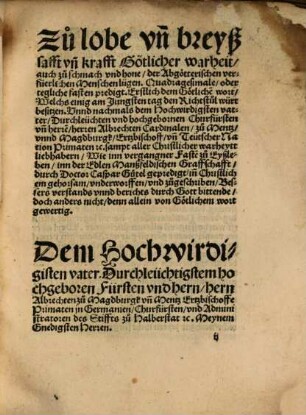 Zů lobe vñ breyß
safft vñ krafft Götlicher warheit/
auch zů schmach vnd hone / der Abgötterischen ver-
fuerlichen Menschen lügen. Quadragesimale / oder
tegliche fasten predigt. Erstlich dem Götliche wort/
Welchs einig am Jungsten tag den Richstůl würt
besitzen. Vnnd nachmals dem Hochwirdigsten va-
ter / Durchleüchten vnd hochgebornen Churfürsten
vñ heri / herrn Albrechten Cardinalen / zů Mentz
vnnd Magdburgk / Ertzbischoff / vñ Teutscher Na
tion Pumaten ıc. sampt aller Chustlicher warheyt
liebhabern / Wie inn vergangner Fastẽ zů Eyßle-
ben / inn der Edlen Manßfeldischen Graffschafft /
durch Doctor Caspar Gütel gepredigt / iñ Chustlich
em gehorsam / vnderworffen / vnd zůgeschriben / Bes-
sers verstands vnnd berichts durch Gott bittende /
doch anders nicht / denn allein von Götlichem wort
gewertig.
Dem Hochwirdi-
gisten vater. Durchleüchtigstem ho
chgeboren Fürsten vnd hern / hern
Albrechten zů Magdburgk vñ Mentz Ertzbischoffe
Pumaten in Germanien / Churfürsten / vnd Admini
stratoren des Stiffts zů Halberstat ıc. Meynem
Gnedigsten Herren.
ij